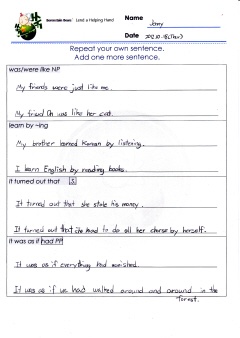 Berenstain Bears: Lend a Helping Hand
Name
Jenny
Date 2012.10.18(Thur)
Repeat your own sentence.
Add one more sentence.
was/were like NP
My friends were just like me.
My friend Oh was like her cat.
learn by ~ing
My brother learned Korean by listening.
I learn English by reading books.
It turned out that S
It turned out that she stole his money.
It turned out that she had to do all her chores by herself.
It was as if had PP
It was as if everything had vanished.
It was as if we had walked around and around in the
forest.